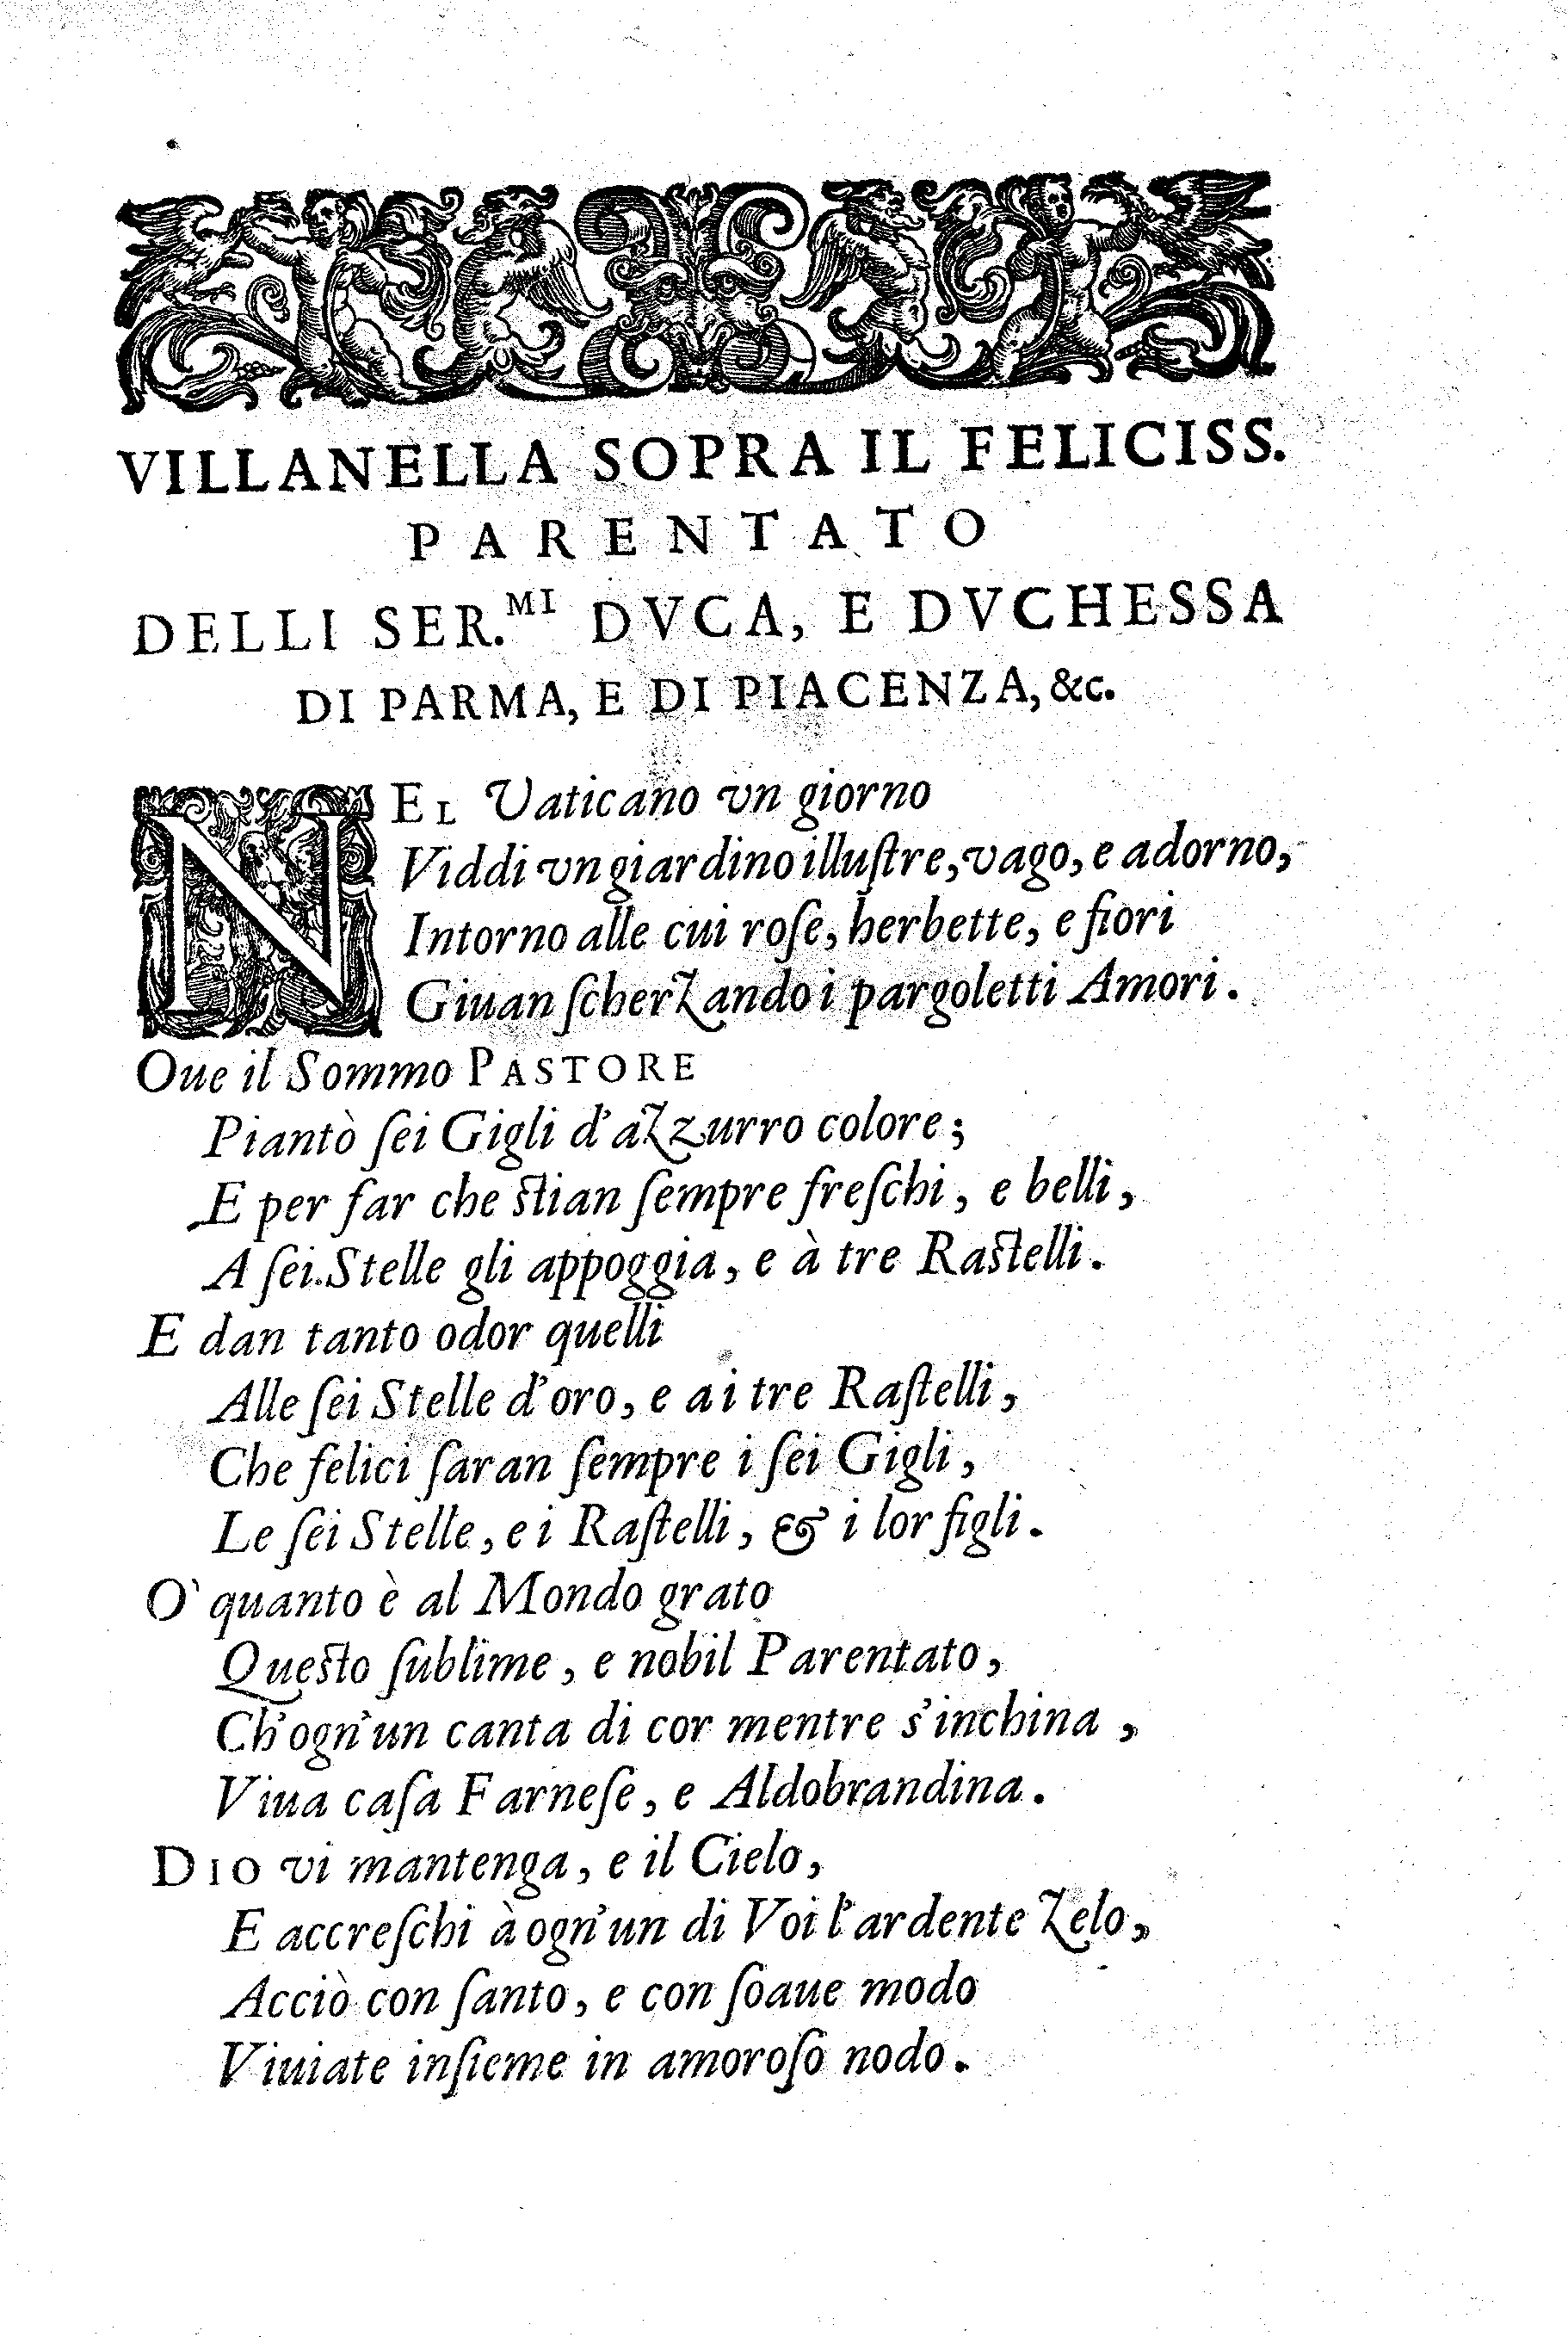 VILLANELLA SOPRA IL FELICISS.
PARENTATO
DELLI SER.MI DVCA, E DVCHESSA
DI PARMA, E DI PIACENZA, &c.
NEL Vaticano vn giorno
Viddi vn giardino illuſtre, vago, e adorno,
Intorno alle cui roſe, herbette, e fiori
Giuan ſcherzando i pargoletti Amori.
Oue il Sommo PASTORE
Piantò ſei Gigli d'azzurro colore;
E per far che ſtian ſempre freſchi, e belli,
A ſei Stelle gli appoggia, e à tre Raſtelli.
E dan tanto odor quelli
Alle ſei Stelle d'oro, e ai tre Raſtelli,
Che felici ſaran ſempre i ſei Gigli,
Le ſei Stelle, e i Raſtelli, & i lor figli.
O` quanto è al Mondo grato
Queſto ſublime, e nobil Parentato,
Ch'ogn'un canta di cor mentre s'inchina,
Viua caſa Farneſe, e Aldobrandina.
DIO vi mantenga, e il Cielo,
E accreſchi à ogn'un di Voi l'ardente zelo,
Acciò con ſanto, e con ſoaue modo
Viuiate inſieme in amoroſo nodo.